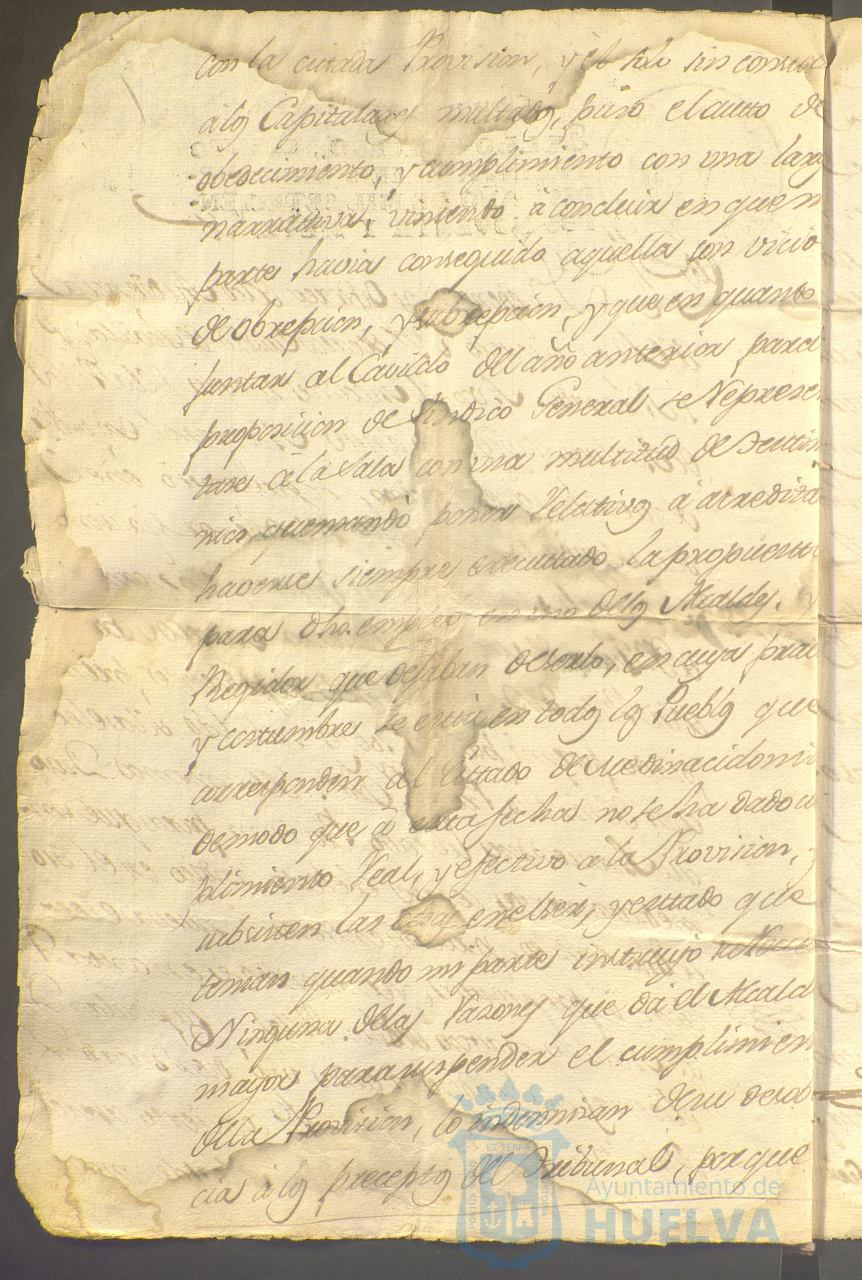 con la citada Provision, y el solo sin consul
a los Capitulares multados, puso el auto de
obedecimiento, y cumplimiento con una larg
narrativa, viniendo a concluir en que m
parte havia conseguido aquella con vicio
de obrepcion, y subrepcion, y que en quanto
juntar al Cavildo del año anterior para
proposicion de Sindico General se Represen
tare a la Sala con una multitud de
poner relativos a acredita
haverse siempre executado la propuesta
para dho. empleo en uno de los Alcaldes.
Regidor que dejaban de serlo, en cuya prac
y costumbre se està en todos los Pueblos que
corresponden al Estado de Medinacidonia
de modo que à esta fecha no se ha dado cu
plimiento Real, y efectivo a la Provision, y
subsisten las cosas en el ser, y estado que
tenian quando mi parte instruyó
Ninguna de las razones que dá el Alcald
mayor para suspender el cumplimien
de la Provision, lo indemnizan de su desob
cia à los preceptos del Tribunal, porque
Ayuntamiento de
HUELVA